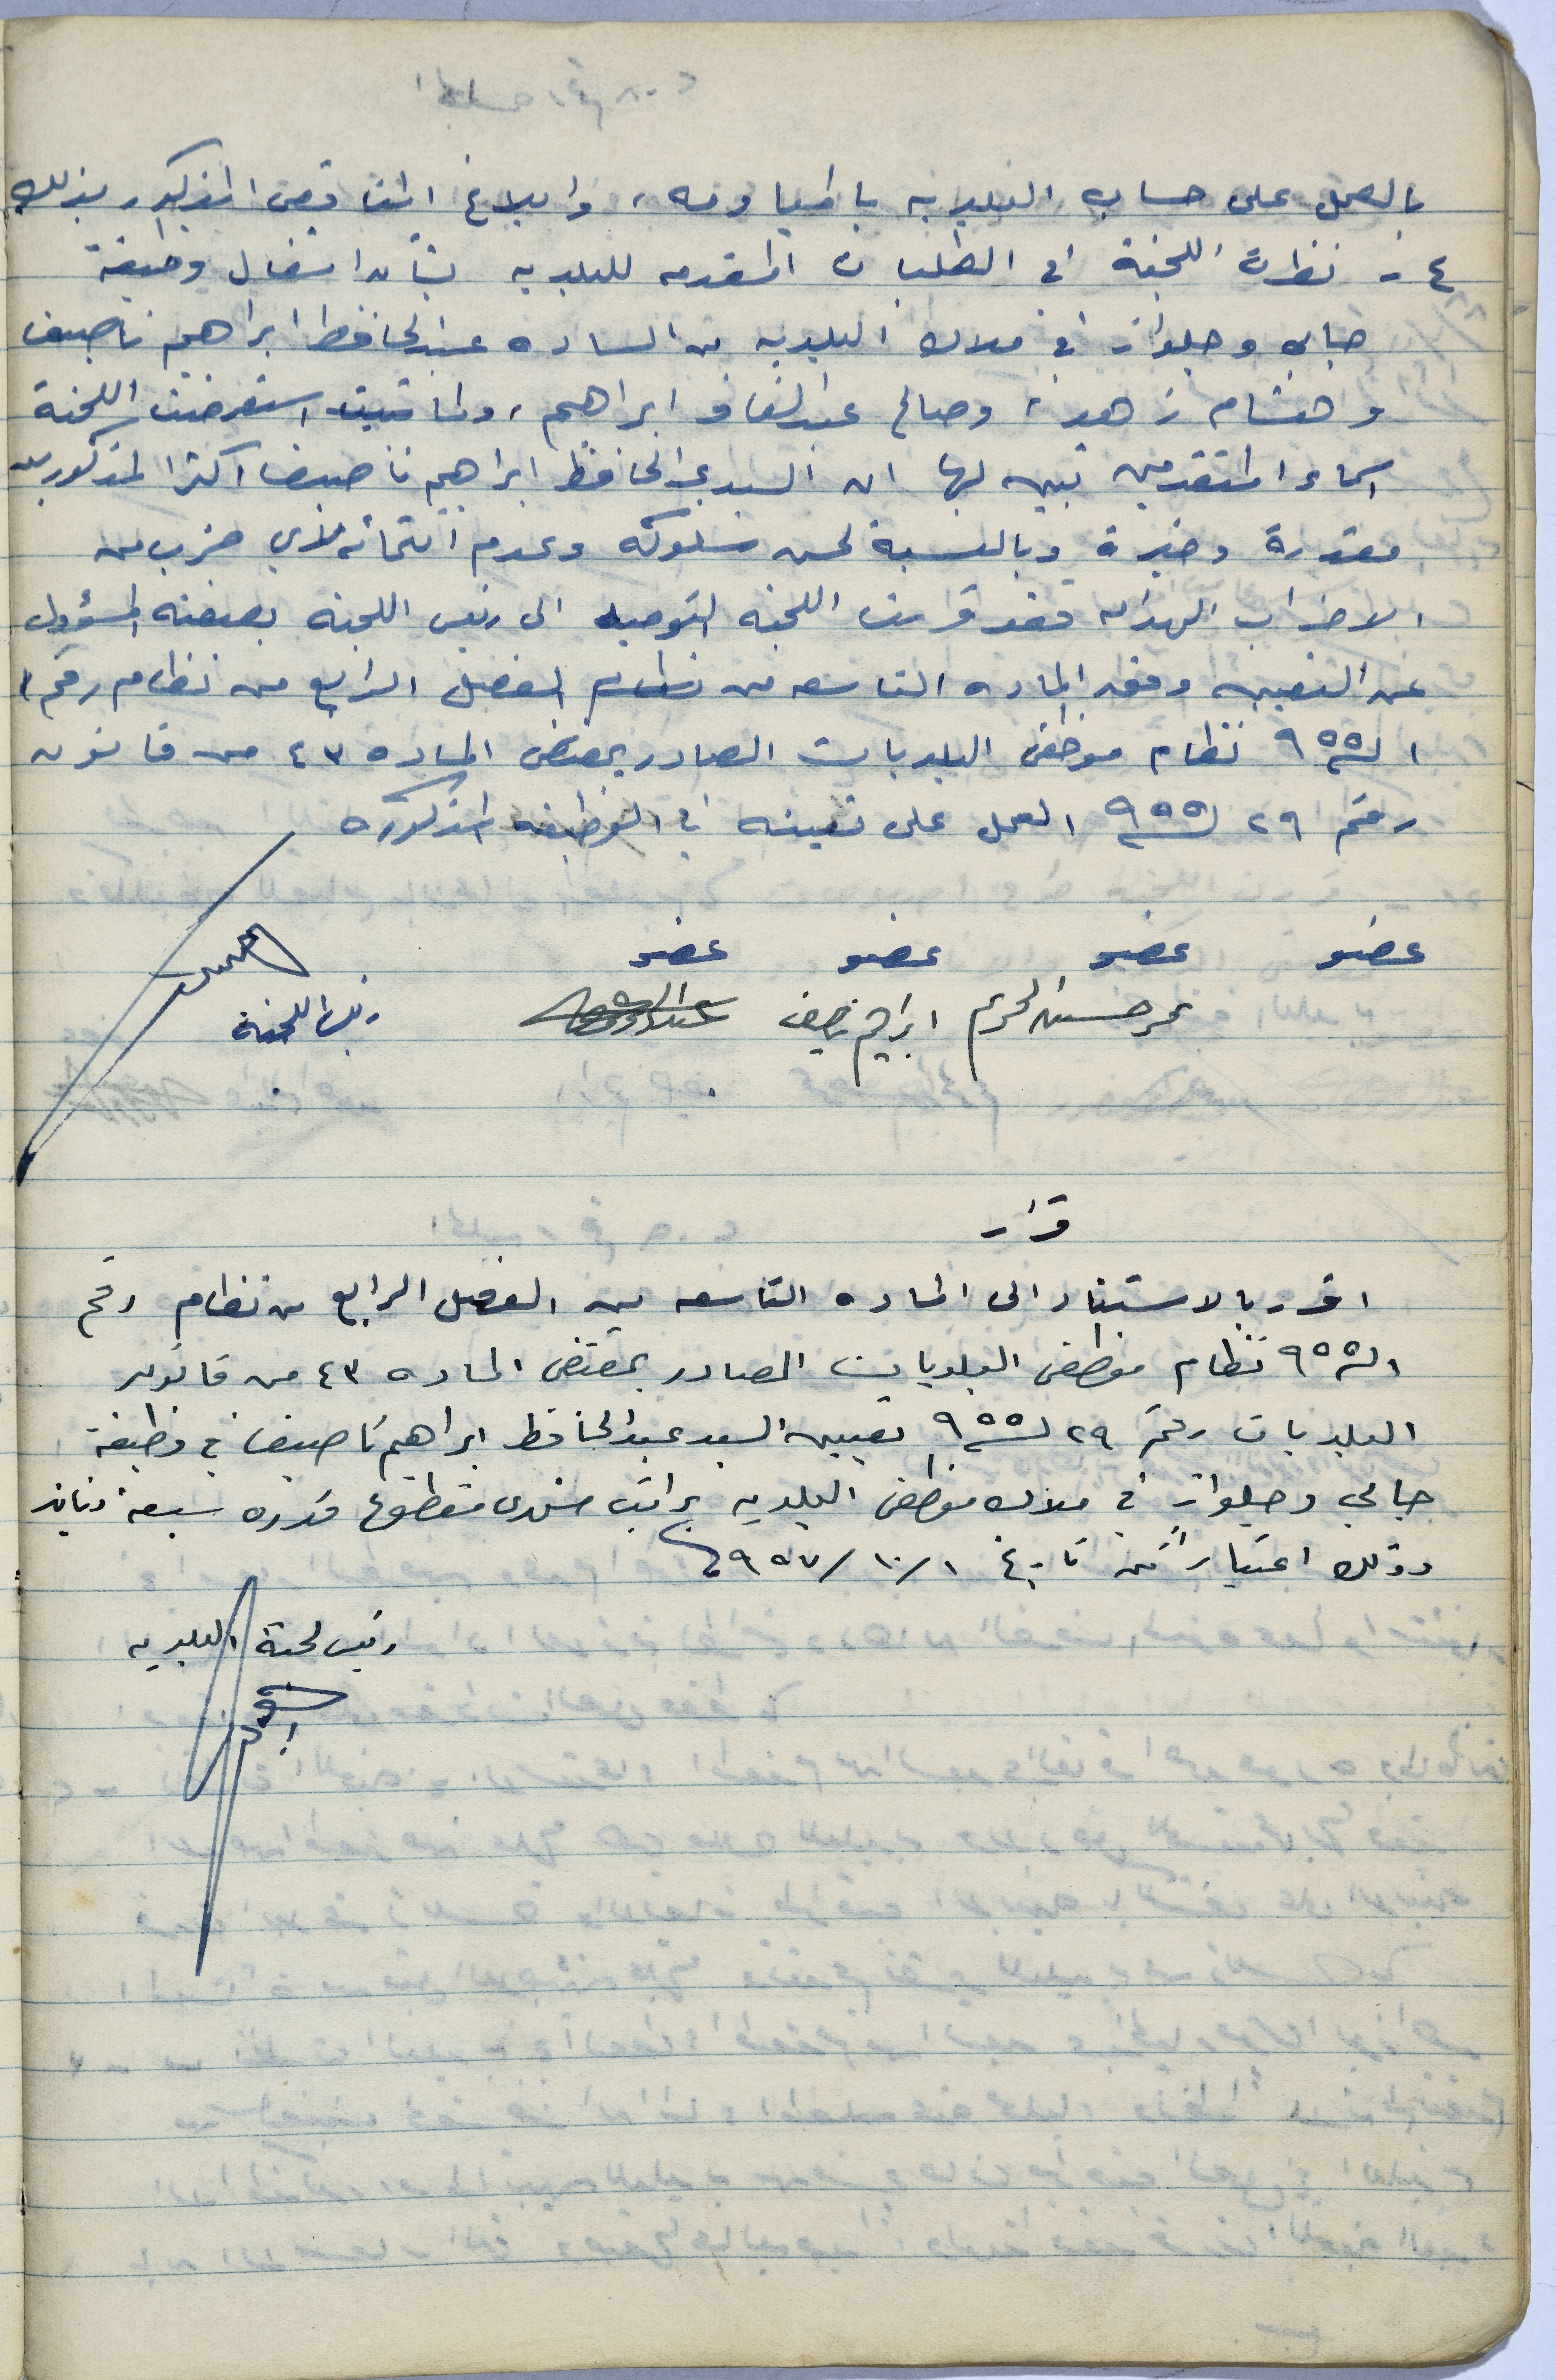 بالعمل على حساب البلديه بالمياومه، وابلاغ المذكور بذلك
٤ - نظرت اللجنة في الطلبات المقدمه للبلديه بشأن اشغال وظيفة
جابي وجلواز في ملاك البلديه من الساده عبدالحافظ ابراهيم ناصيف
وهشام زهد، وصالح عبد ابراهيم، ولما استعرضت اللجنة
اسماء المتقدمين تبين لها ان السيد عبدالحافظ ابراهيم ناصيف اكثر المذكورين
مقدرة وخبرة وبالنسبة لحسن سلوكه وعدم انتمائه لأي حزب من
الاحزاب الهدامه فقد قررت اللجنه التوصيه الى رئيس اللجنة بصفته المسؤول
عن التعيين وفق الماده التاسعه من الفصل الرابع من نظام رقم ١
لسنة ٩٥٥ نظام موظفي البلديات الصادر بمقتضى الماده ٤٣ من قانون
رقم ٢٩ لسنة ٩٥٥ العمل على تعيينه في الوظيفه المذكوره
عضو عضو عضو عضو
ابراهيم ناصيف
رئيس اللجنة
قرار
اقرر بالاستناد الى الماده التاسعه من الفصل الرابع من نظام رقم
١ لسنة ٩٥٥ نظام موظفي البلديات الصادر بمقتضى الماده ٤٣ من قانون
البلديات رقم ٢٩ لسنة ٩٥٥ تعيين السيد عبدالحافظ ابراهيم ناصيف في وظيفة
جابي وجلواز في ملاك موظفي البلديه براتب شهري مقطوع قدره سبعة دنانير
وذلك اعتباراً من تاريخ ١/١٠/٩٥٧
رئيس لجنة البلديه